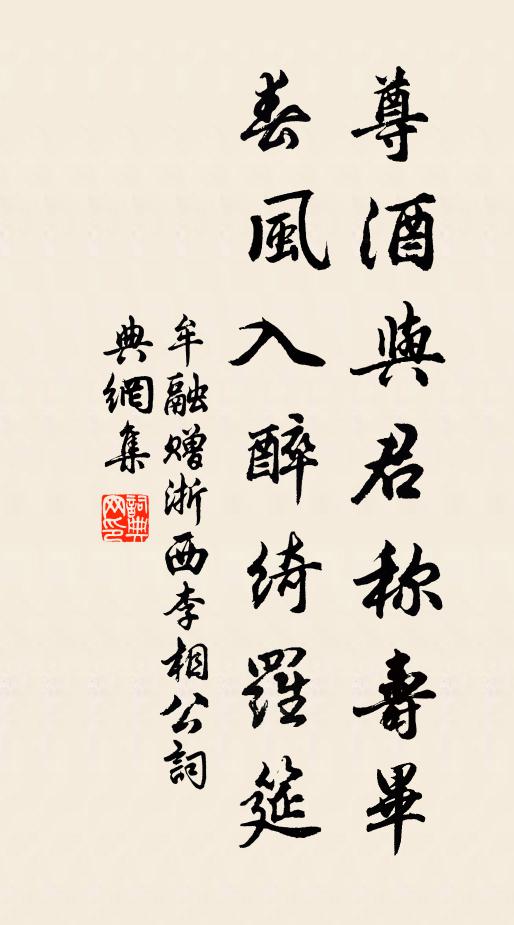 尊酒與君称壽畢
春風入醉綺羅筵
牟融赠浙西李相公詞
典網集
詞典网印